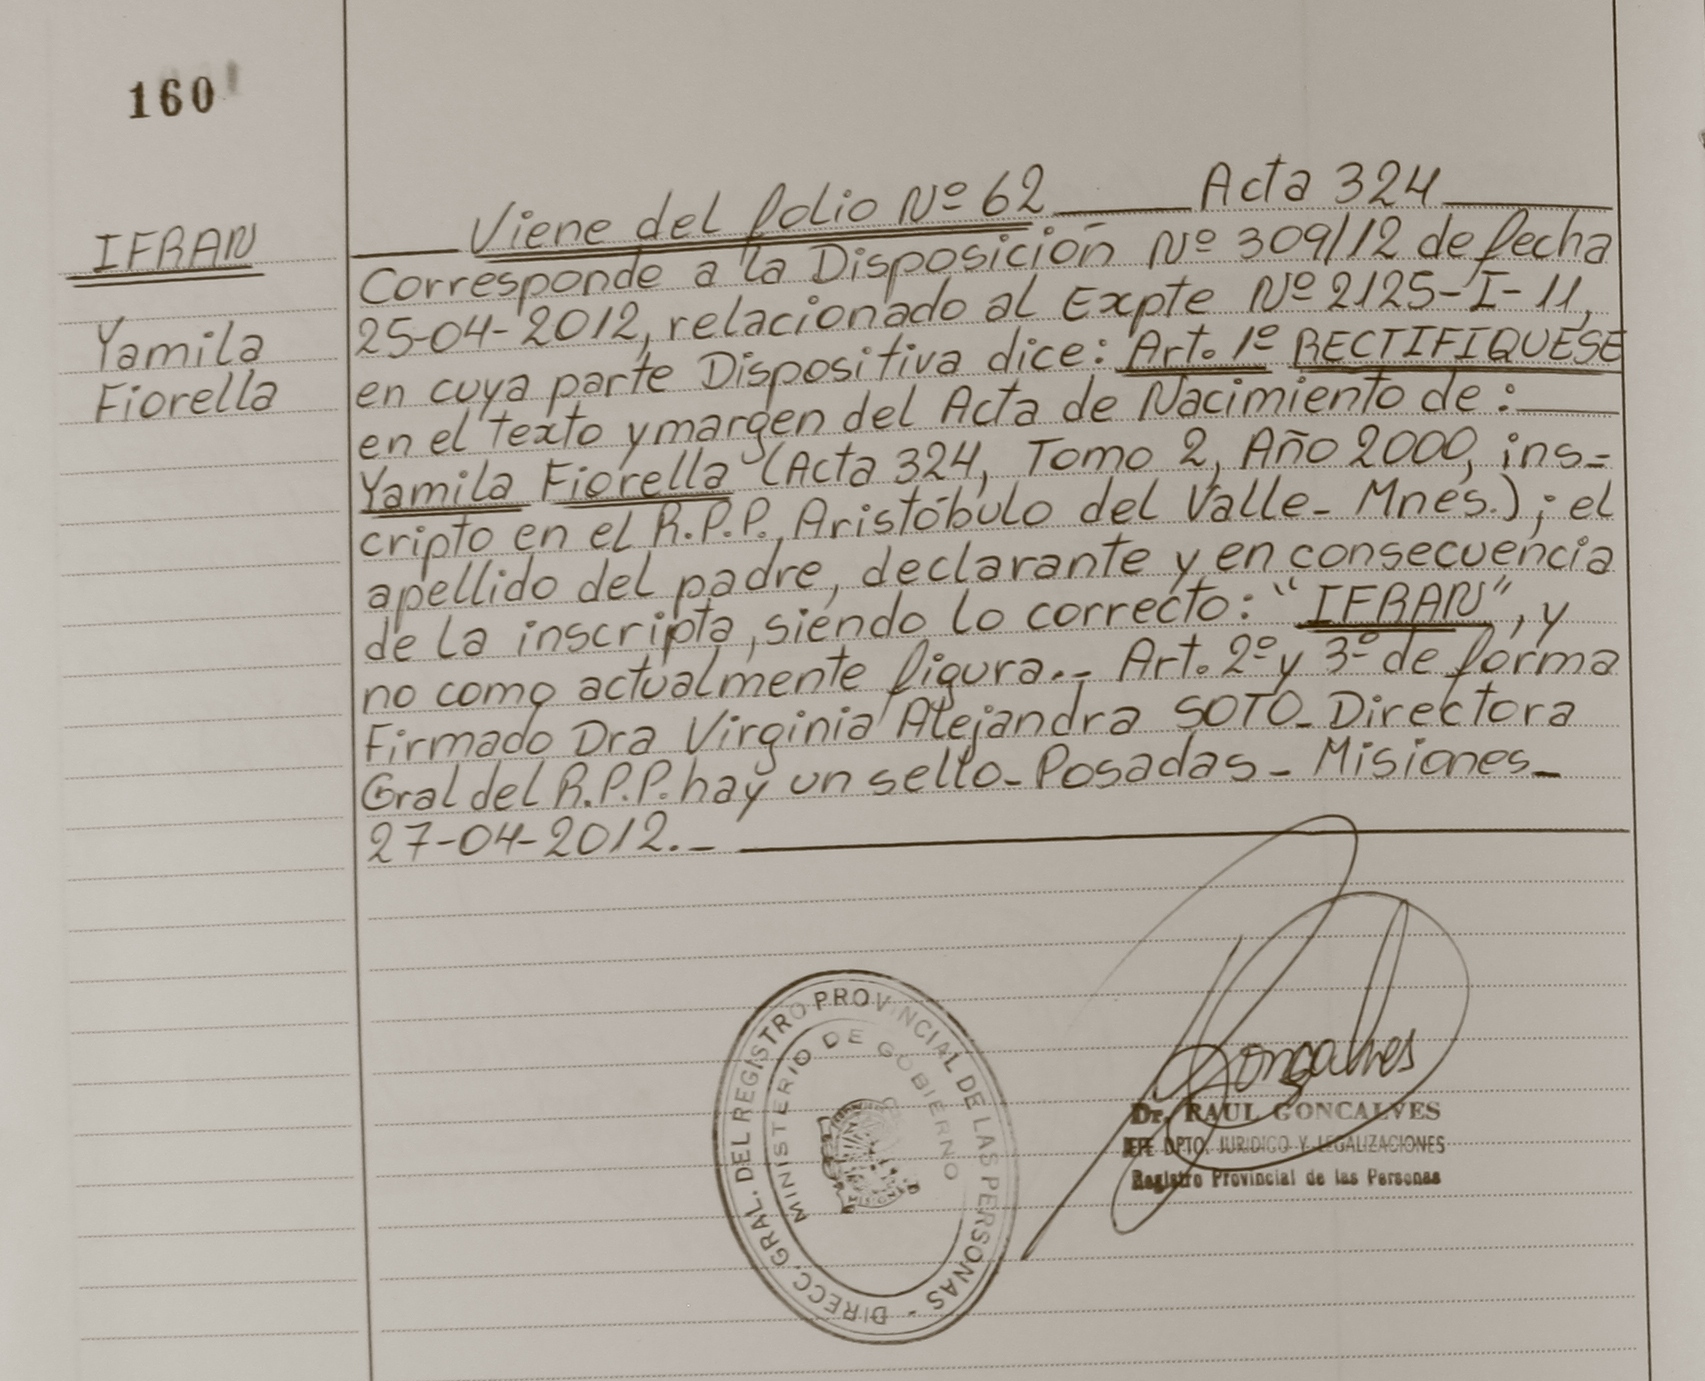 160
IFRAN
Yamila
Fiorella
Viene del folio Nº 62 Acta 324
Corresponde a la Disposición Nº 309/12 de fecha
25-04-2012, relacionado al Expte Nº 2125-I-11,
en cuya parte Dispositiva dice: Art. 1º RECTIFIQUESE
en el texto y margen del Acta de Nacimiento de:
Yamila Fiorella (Acta 324, Tomo 2, Año 2000, ins=
cripto en el R.P.P. Aristóbulo del Valle_ Mnes.); el
apellido del padre, declarante y en consecuencia
de la inscripta, siendo lo correcto: "IFRAN", y
no como actualmente figura._ Art. 2º y 3º de forma
Firmado Dra Virginia Alejandra SOTO_ Directora
Gral del R.P.P. hay un sello_ Posadas_ Misiones_
27-04-2012._
DIRECC. GRAL. DEL REGISTRO PROVINCIAL DE LAS PERSONAS -
MINISTERIO DE GOBIERNO
MISIONES
Gonçalves
Dr. RAUL GONCALVES
JEFE DPTO. JURIDICO Y LEGALIZACIONES
Registro Provincial de las Personas